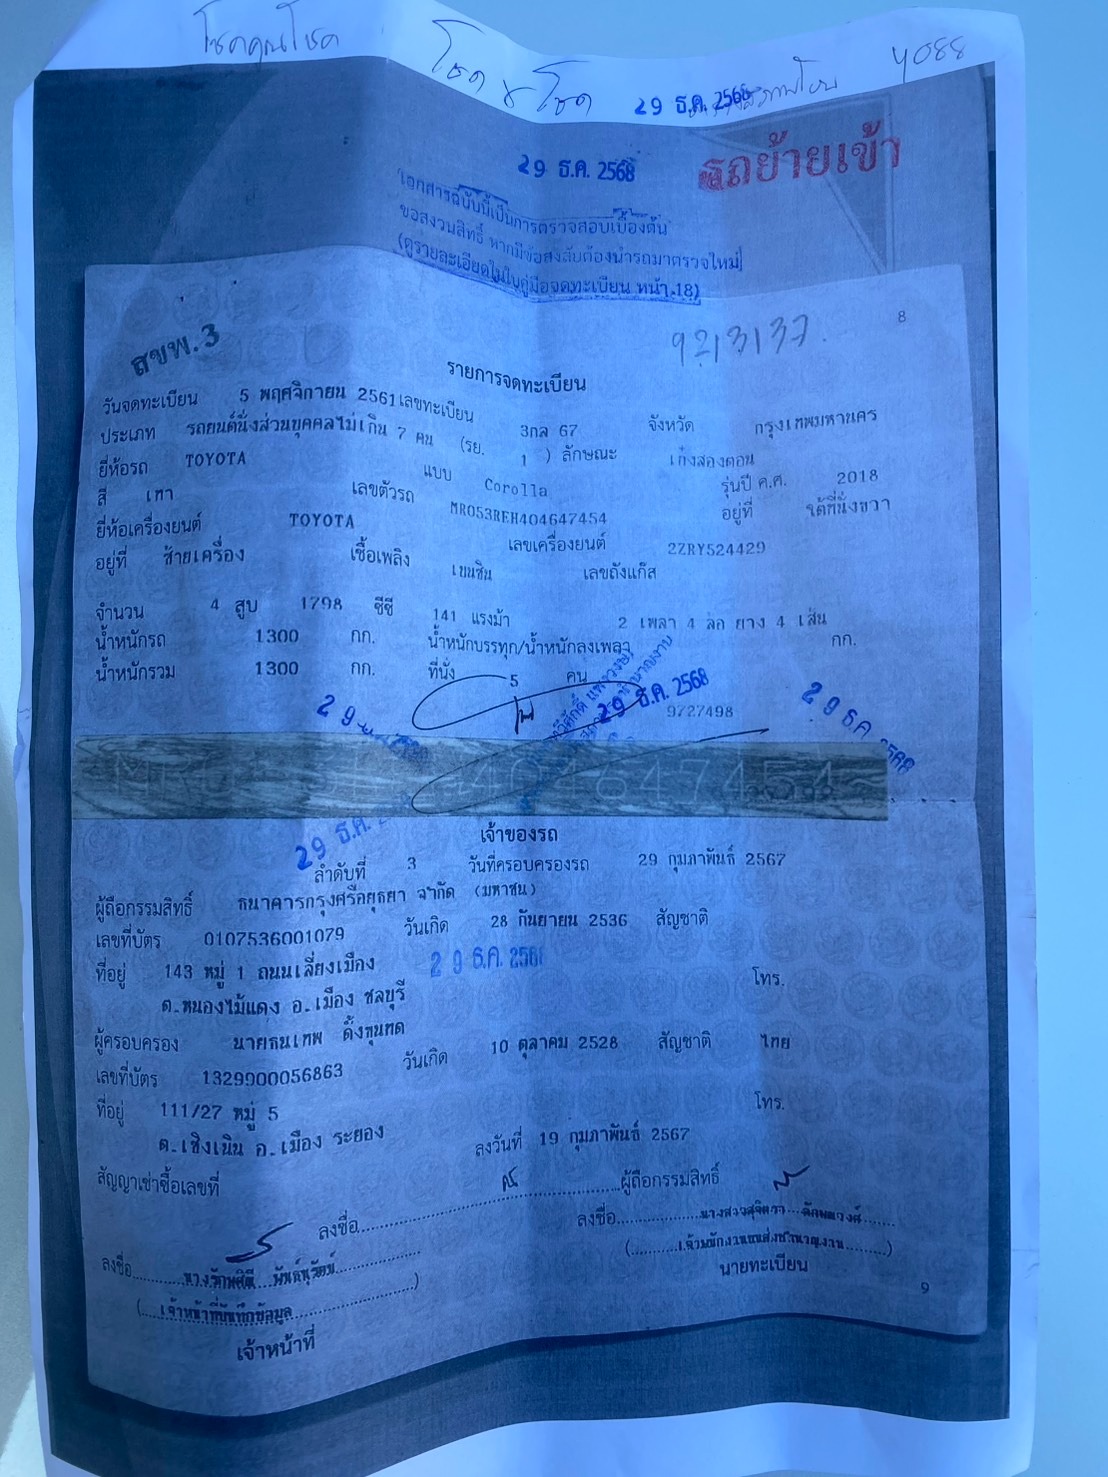 โชคคูณโชค
โชค x โชค
4088
29 ธ.ค. 2568
29 ธ.ค. 2568
รถย้ายเข้า
"เอกสารฉบับนี้เป็นการตรวจสอบเบื้องต้น"
ขอสงวนสิทธิ์ หากมีข้อสงสัยต้องนำรถมาตรวจใหม่
(ดูรายละเอียดในใบคู่มือจดทะเบียน หน้า 18)
8
สขพ.3
9213137
รายการจดทะเบียน
วันจดทะเบียน 5 พฤศจิกายน 2561 เลขทะเบียน 3กล 67 จังหวัด กรุงเทพมหานคร
ประเภท รถยนต์นั่งส่วนบุคคลไม่เกิน 7 คน (รย. 1 ) ลักษณะ เก๋งสองตอน
ยี่ห้อรถ TOYOTA แบบ Corolla รุ่นปี ค.ศ. 2018
สี เทา เลขตัวรถ MR053REH404647454 อยู่ที่ ใต้ที่นั่งขวา
ยี่ห้อเครื่องยนต์ TOYOTA เลขเครื่องยนต์ 2ZRY524429
อยู่ที่ ซ้ายเครื่อง เชื้อเพลิง เบนซิน เลขถังแก๊ส
จำนวน 4 สูบ 1798 ซีซี 141 แรงม้า 2 เพลา 4 ล้อ ยาง 4 เส้น
น้ำหนักรถ 1300 กก. น้ำหนักบรรทุก/น้ำหนักลงเพลา กก.
น้ำหนักรวม 1300 กก. ที่นั่ง 5 คน
29 ธ.ค. 2568
9727498
29 ธ.ค. 2568
404647454
29 ธ.ค.
เจ้าของรถ
ลำดับที่ 3 วันที่ครอบครองรถ 29 กุมภาพันธ์ 2567
ผู้ถือกรรมสิทธิ์ ธนาคารกรุงศรีอยุธยา จำกัด (มหาชน)
เลขที่บัตร 0107536001079 วันเกิด 28 กันยายน 2536 สัญชาติ
ที่อยู่ 143 หมู่ 1 ถนนเลี่ยงเมือง 29 ธ.ค. 2568
ต.หนองไม้แดง อ.เมือง ชลบุรี โทร.
ผู้ครอบครอง นายธนเทพ ดั้งขุนทด
เลขที่บัตร 1329900056863 วันเกิด 10 ตุลาคม 2528 สัญชาติ ไทย
ที่อยู่ 111/27 หมู่ 5 โทร.
ต.เชิงเนิน อ.เมือง ระยอง ลงวันที่ 19 กุมภาพันธ์ 2567
สัญญาเช่าซื้อเลขที่
ลงชื่อ ผู้ถือกรรมสิทธิ์
ลงชื่อ นางสาวสุจิตรา
(เจ้าพนักงานขนส่งชำนาญงาน)
นายทะเบียน
ลงชื่อ
(เจ้าหน้าที่บันทึกข้อมูล)
เจ้าหน้าที่
9